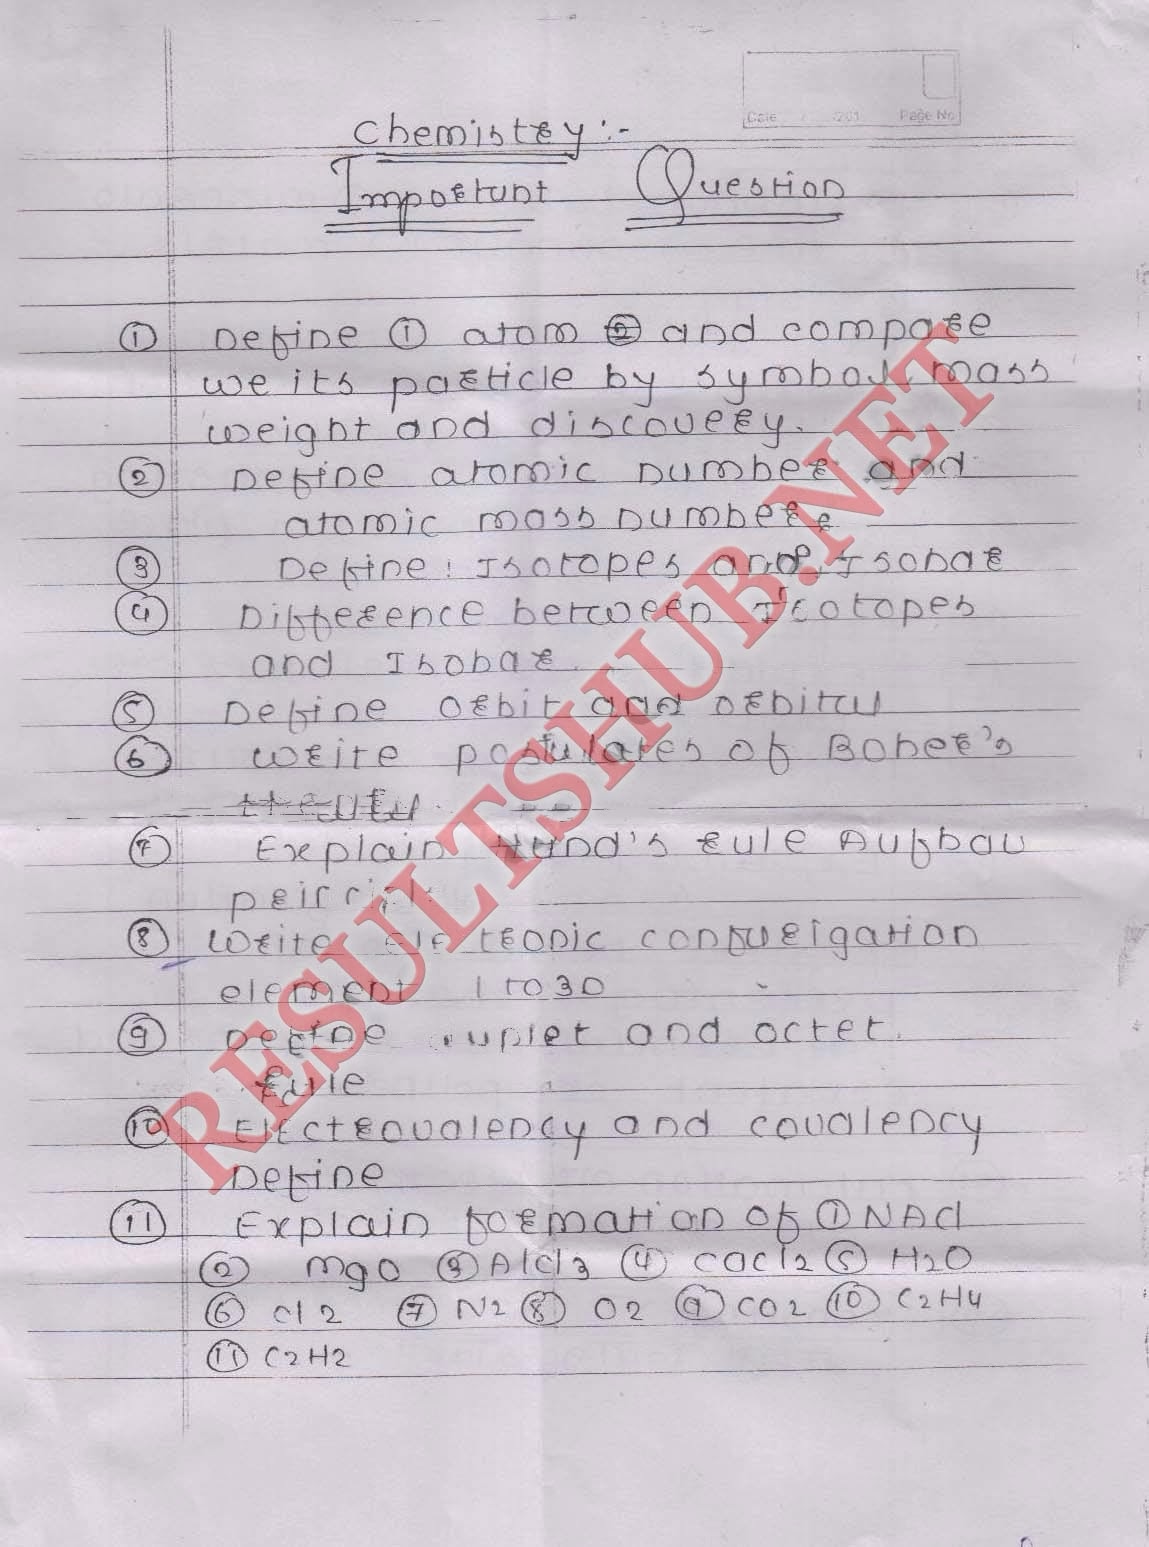 Date / /201 Page No
Chemistry :-
Important Question
① Define ① atom and compare
we its particle by symbol, mass
weight and discovery.
② Define atomic number and
atomic mass number
③ Define : Isotopes and Isobar
④ Difference between Isotopes
and Isobar
⑤ Define orbit and orbital
⑥ Write postulates of Boher's
⑦ Explain Hund's rule Aufbau
⑧ Write electronic confurigation
element 1 to 30
⑨ Define duplet and octet.
rule
⑩ Electrovalency and covalency
Define
⑪ Explain formation of ① NACl
② MgO ③ AlCl3 ④ CaCl2 ⑤ H2O
⑥ Cl2 ⑦ N2 ⑧ O2 ⑨ CO2 ⑩ C2H4
⑪ C2H2
RESULTSHUB.NET